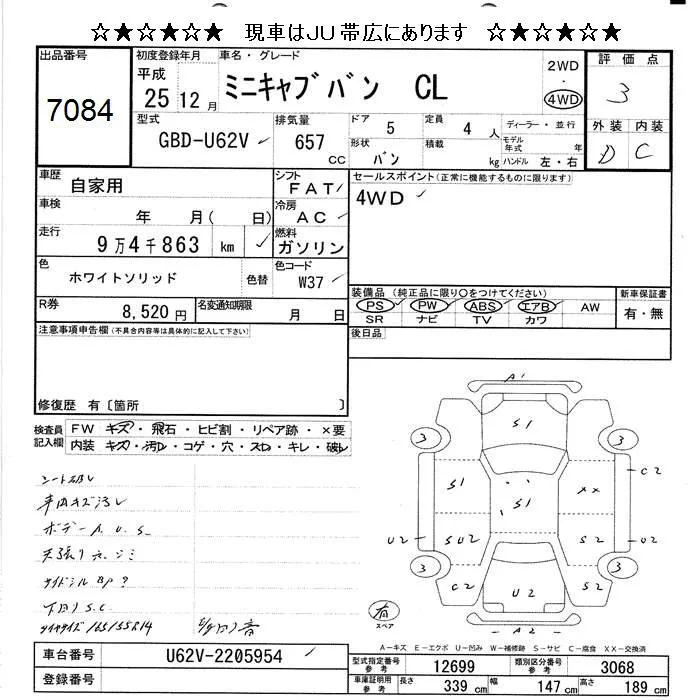 ☆★☆★☆★ 現車はJU帯広にあります ☆★☆★☆★
出品番号
7084
初度登録年月
平成
25 12 月
車名・グレード
ミニキャブバン CL
2WD
・
4WD
評価点
3
外装 内装
D C
型式
GBD-U62V
排気量
657
cc
ドア 5
定員 4 人
ディーラー・並行
形状 バン
積載 kg
モデル年式 年
ハンドル 左・右
車歴
自家用
シフト
FAT
セールスポイント(正常に機能するものに限ります)
4WD
車検
年 月( 日)
冷房
AC
走行
9万4千863 km
燃料
ガソリン
色
ホワイトソリッド
色替
色コード
W37
装備品(純正品に限り○をつけてください)
PS PW ABS エアB AW
SR ナビ TV カワ
新車保証書
有・無
R券
8,520円
名変通知期限
月 日
後日品
注意事項申告欄(不具合内容等は具体的に記入して下さい)
修復歴 有〔箇所 〕
検査員記入欄
FW キズ・飛石・ヒビ割・リペア跡・×要
内装 キズ・汚レ・コゲ・穴・スレ・キレ・破レ
シート破レ
車内キズ汚レ
ボデーA.U.S.
サイドシルBP?
下回りS.C
タイヤサイズ 165/55R14
A1
S1
3
3
C2
S1
S1
XX
U2
SU2
S2
U2
3
3
C2
S2
U2
A2
有
スペア
A-キズ E-エクボ U-凹み W-補修跡 S-サビ C-腐食 XX-交換済
車台番号
U62V-2205954
登録番号
型式指定番号
12699
類別区分番号
3068
車庫証明用参考
長さ 339 cm
幅 147 cm
高さ 189 cm